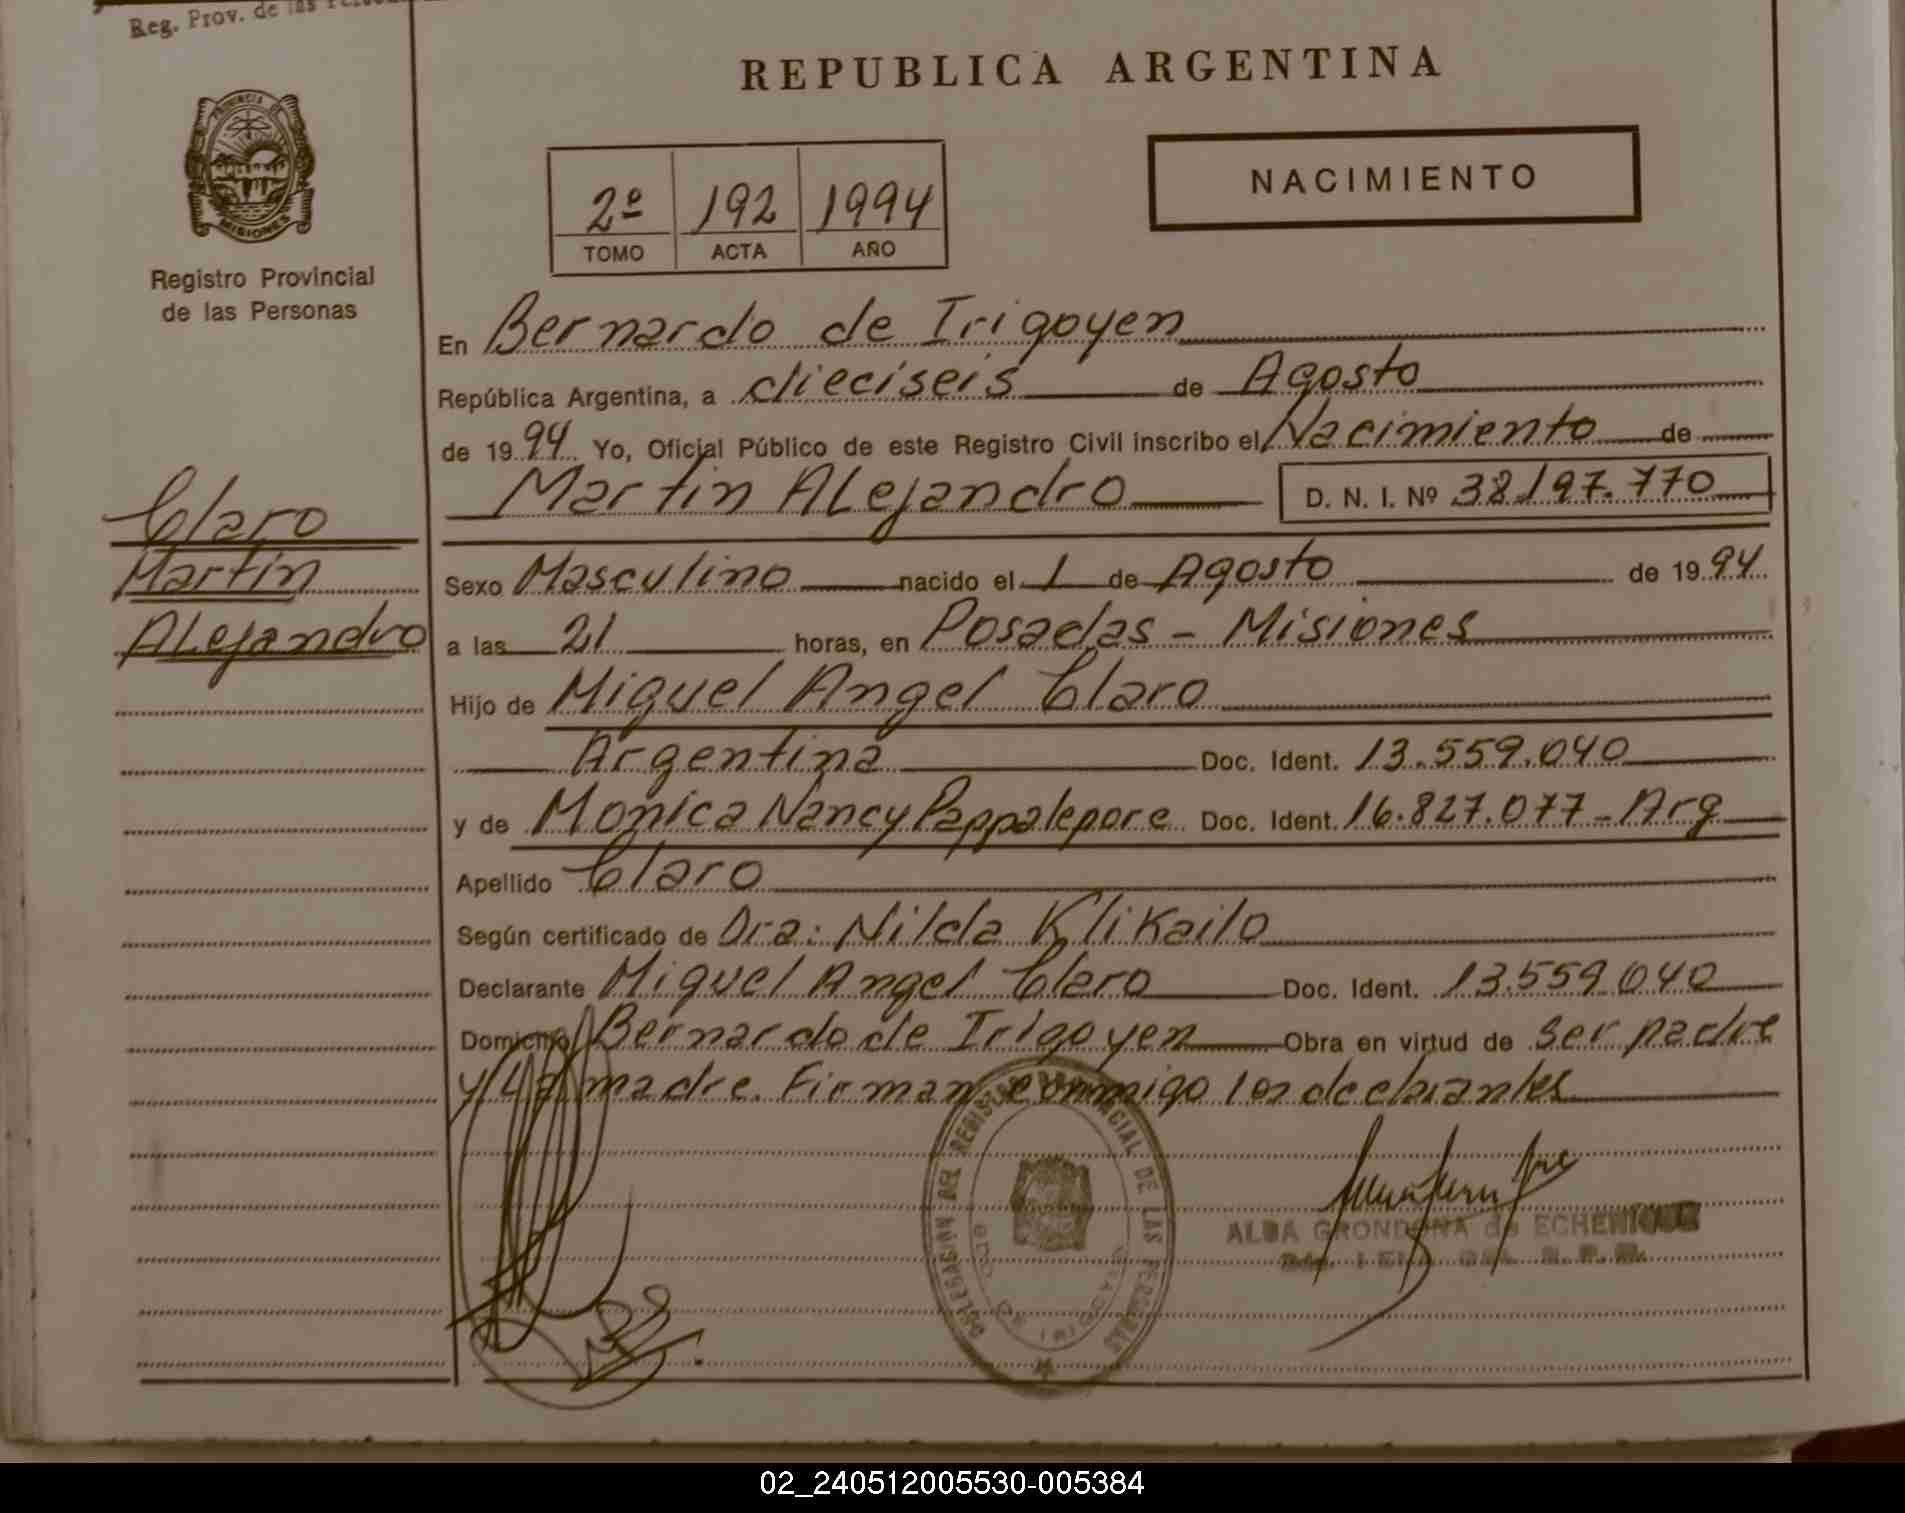 Reg. Prov. de las
REPUBLICA ARGENTINA
PROVINCIA DE
MISIONES
Registro Provincial
de las Personas
NACIMIENTO
2º 192 1994
TOMO ACTA AÑO
En Bernardo de Irigoyen
República Argentina, a dieciseis de Agosto
de 1994 Yo, Oficial Público de este Registro Civil inscribo el Nacimiento de
Martin ALejandro D. N. I. Nº 38.197.770
Claro
Martin
ALejandro
Sexo Masculino nacido el 1 de Agosto de 1994
a las 21 horas, en Posadas - Misiones
Hijo de Miguel Angel Claro
Argentina Doc. Ident. 13.559.040
y de Monica Nancy Pappalepore Doc. Ident. 16.827.077 - Arg
Apellido Claro
Según certificado de Dra: Nilda Klikailo
Declarante Miguel Angel Claro Doc. Ident. 13.559.040
Domicilio Bernardo de Irigoyen Obra en virtud de ser padre
y La madre. Firman conmigo los declarantes
DELEGACIÓN DEL REGISTRO PROVINCIAL DE LAS PERSONAS
ALBA GRONDONA de ECHENIQUE
02_240512005530-005384